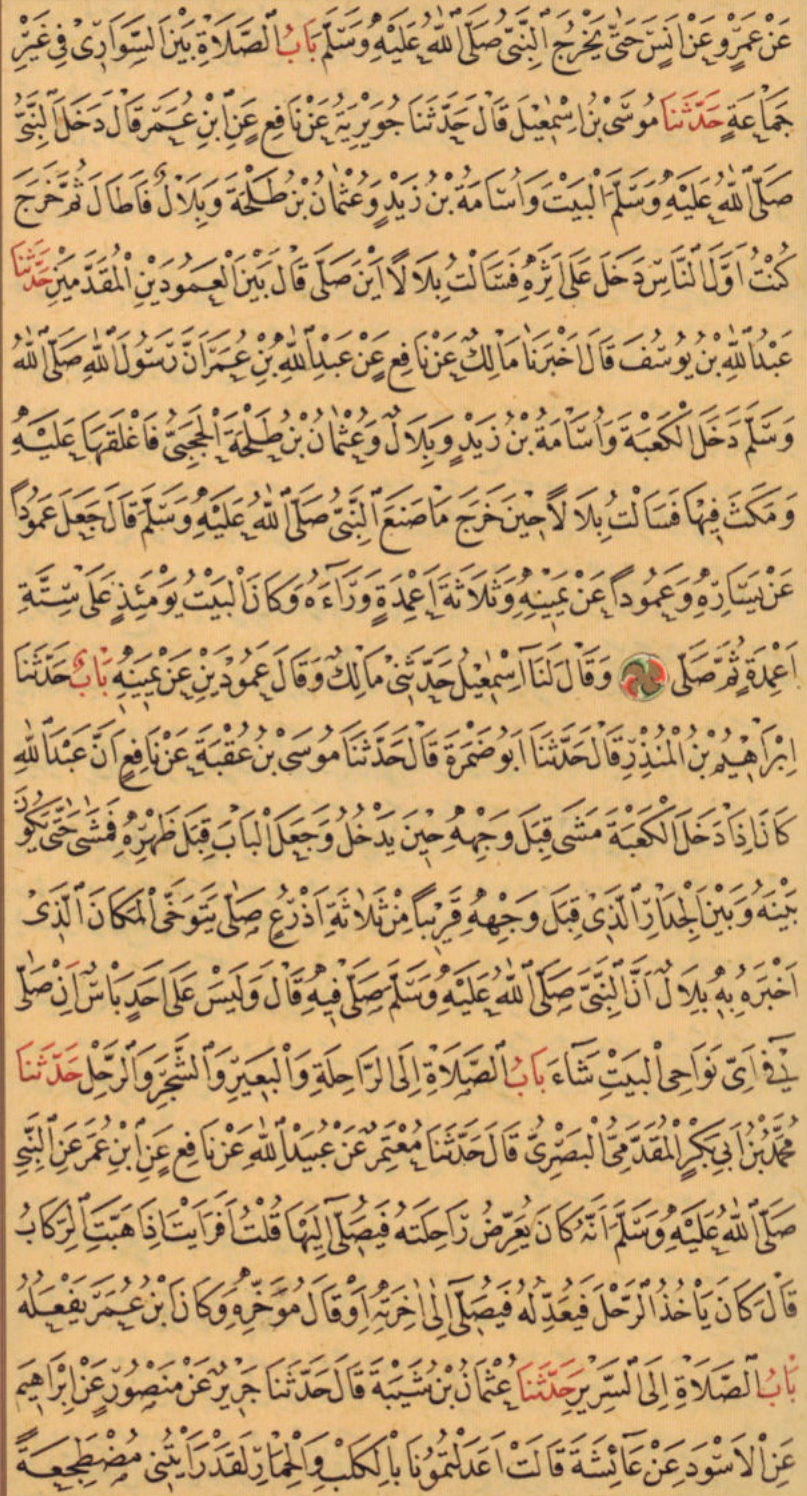 عَنْ عَمْرٍو عَنْ اَنَسٍ حَتّٰى يَخْرُجَ النَّبِىُّ صَلَّى اللّٰهُ عَلَيْهِ وَسَلَّمَ بَابُ الصَّلَاةِ بَيْنَ السَّوَارِى فِى غَيْرِ
جَمَاعَةٍ حَدَّثَنَا مُوسَى بْنُ اِسْمٰعِيْلَ قَالَ حَدَّثَنَا جُوَيْرِيَةُ عَنْ نَافِعٍ عَنِ ابْنِ عُمَرَ قَالَ دَخَلَ النَّبِىُّ
صَلَّى اللّٰهُ عَلَيْهِ وَسَلَّمَ الْبَيْتَ وَاُسَامَةُ بْنُ زَيْدٍ وَعُثْمٰانُ بْنُ طَلْحَةَ وَبِلَالٌ فَاَطَالَ ثُمَّ خَرَجَ
كُنْتُ اَوَّلَ النَّاسِ دَخَلَ عَلٰى اَثَرِهِ فَسَاَلْتُ بِلَالًا اَيْنَ صَلَّى قَالَ بَيْنَ الْعَمُودَيْنِ الْمُقَدَّمَيْنِ حَدَّثَنَا
عَبْدُ اللّٰهِ بْنُ يُوسُفَ قَالَ اَخْبَرَنَا مَالِكٌ عَنْ نَافِعٍ عَنْ عَبْدِ اللّٰهِ بْنِ عُمَرَ اَنَّ رَسُولَ اللّٰهِ صَلَّى اللّٰهُ
وَسَلَّمَ دَخَلَ الْكَعْبَةَ وَاُسَامَةُ بْنُ زَيْدٍ وَبِلَالٌ وَعُثْمٰانُ بْنُ طَلْحَةَ الْحَجَبِىُّ فَاَغْلَقَهَا عَلَيْهِ
وَمَكَثَ فِيْهَا فَسَاَلْتُ بِلَالًا حِيْنَ خَرَجَ مَا صَنَعَ النَّبِىُّ صَلَّى اللّٰهُ عَلَيْهِ وَسَلَّمَ قَالَ جَعَلَ عَمُوداً
عَنْ يَسَارِهِ وَعَمُوداً عَنْ يَمِيْنِهِ وَثَلَاثَةَ اَعْمِدَةٍ وَرَآءَهُ وَكَانَ الْبَيْتُ يَوْمَئِذٍ عَلٰى سِتَّةِ
اَعْمِدَةٍ ثُمَّ صَلَّى وَقَالَ لَنَا اِسْمٰعِيْلُ حَدَّثَنِى مَالِكٌ وَقَالَ عَمُودَيْنِ عَنْ يَمِيْنِهِ بَابٌ حَدَّثَنَا
اِبْرَاهِيْمُ بْنُ الْمُنْذِرِ قَالَ حَدَّثَنَا اَبُو ضَمْرَةَ قَالَ حَدَّثَنَا مُوسَى بْنُ عُقْبَةَ عَنْ نَافِعٍ اَنَّ عَبْدَ اللّٰهِ
كَانَ اِذَا دَخَلَ الْكَعْبَةَ مَشَى قِبَلَ وَجْهِهِ حِيْنَ يَدْخُلُ وَجَعَلَ الْبَابَ قِبَلَ ظَهْرِهِ فَمَشٰى حَتّٰى يَكُونَ
بَيْنَهُ وَبَيْنَ الْجِدَارِ الَّذِى قِبَلَ وَجْهِهِ قَرِيْباً مِنْ ثَلَاثَةِ اَذْرُعٍ صَلَّى يَتَوَخَّى الْمَكَانَ الَّذِى
اَخْبَرَهُ بِهِ بِلَالٌ اَنَّ النَّبِىَّ صَلَّى اللّٰهُ عَلَيْهِ وَسَلَّمَ صَلَّى فِيْهِ قَالَ وَلَيْسَ عَلٰى اَحَدٍ بَاْسٌ اِنْ صَلَّى
فِى اَىِّ نَوَاحِى الْبَيْتِ شَآءَ بَابُ الصَّلَاةِ اِلَى الرَّاحِلَةِ وَالْبَعِيْرِ وَالشَّجَرِ وَالرَّحْلِ حَدَّثَنَا
مُحَمَّدُ بْنُ اَبِى بَكْرٍ الْمُقَدَّمِىُّ الْبَصْرِىُّ قَالَ حَدَّثَنَا مُعْتَمِرٌ عَنْ عُبَيْدِ اللّٰهِ عَنْ نَافِعٍ عَنِ ابْنِ عُمَرَ عَنِ النَّبِىِّ
صَلَّى اللّٰهُ عَلَيْهِ وَسَلَّمَ اَنَّهُ كَانَ يُعَرِّضُ رَاحِلَتَهُ فَيُصَلِّى اِلَيْهَا قُلْتُ اَفَرَاَيْتَ اِذَا هَبَّتِ الرِّكَابُ
قَالَ كَانَ يَاْخُذُ الرَّحْلَ فَيُعَدِّلُهُ فَيُصَلِّى اِلٰى اٰخِرَتِهِ اَوْ قَالَ مُؤَخَّرِهِ وَكَانَ ابْنُ عُمَرَ يَفْعَلُهُ
بَابُ الصَّلَاةِ اِلَى السَّرِيْرِ حَدَّثَنَا عُثْمَانُ بْنُ شَيْبَةَ قَالَ حَدَّثَنَا جَرِيْرٌ عَنْ مَنْصُورٍ عَنْ اِبْرَاهِيْمَ
عَنِ الْاَسْوَدِ عَنْ عَآئِشَةَ قَالَتْ اَعَدَلْتُمُونَا بِالْكَلْبِ وَالْحِمَارِ لَقَدْ رَاَيْتُنِى مُضْطَجِعَةً